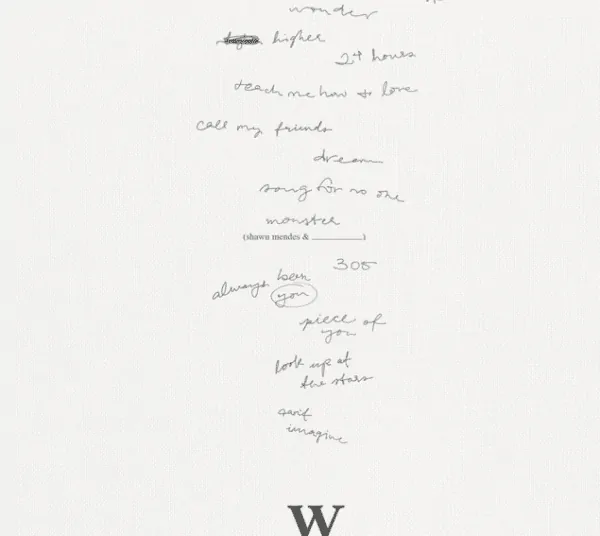 wonder
higher
24 hours
teach me how to love
call my friends
dream
song for no one
monster
(shawn mendes & ________)
305
always been
you
piece of
you
look up at
the stars
can't
imagine
W